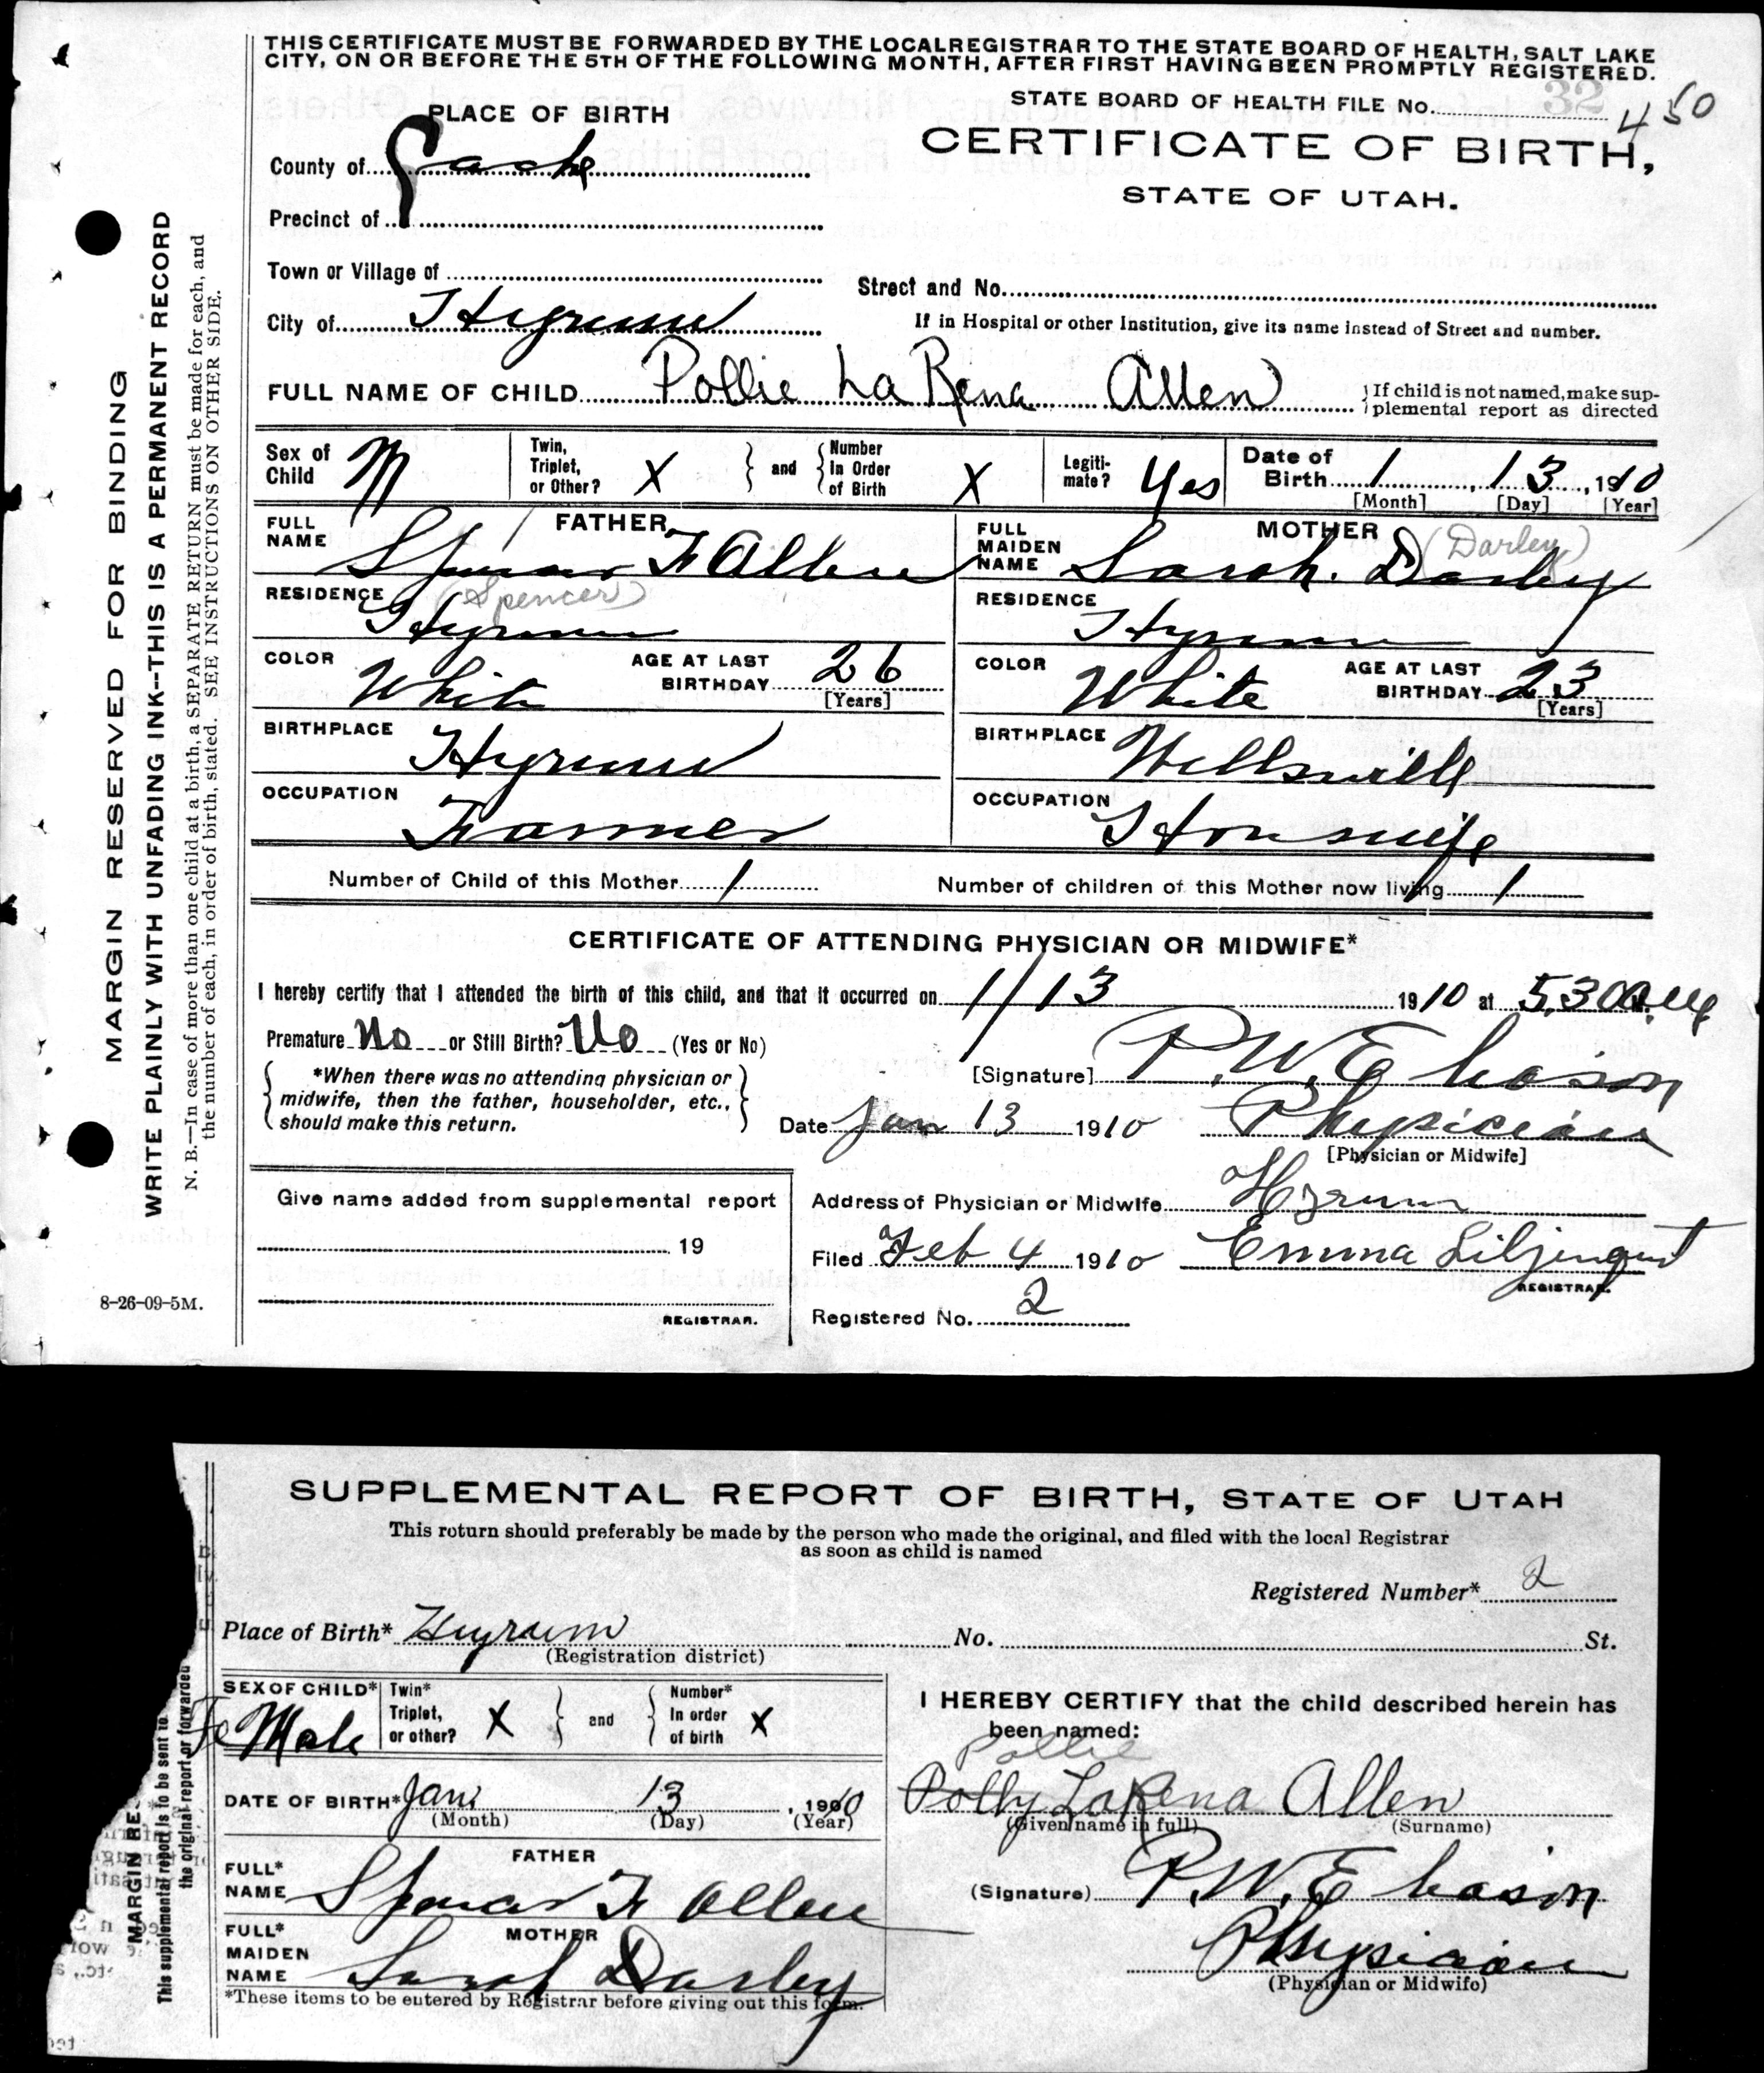 THIS CERTIFICATE MUST BE FORWARDED BY THE LOCAL REGISTRAR TO THE STATE BOARD OF HEALTH, SALT LAKE
CITY, ON OR BEFORE THE 5TH OF THE FOLLOWING MONTH, AFTER FIRST HAVING BEEN PROMPTLY REGISTERED.
STATE BOARD OF HEALTH FILE No. 32 450
PLACE OF BIRTH
CERTIFICATE OF BIRTH,
County of Cache
STATE OF UTAH.
Precinct of
Town or Village of
Street and No.
City of Hyrum
If in Hospital or other Institution, give its name instead of Street and number.
FULL NAME OF CHILD Pollie La Rena Allen
If child is not named, make sup-
plemental report as directed
Sex of Child M
Twin, Triplet, or Other? X and Number In Order of Birth X
Legiti-mate? Yes
Date of Birth 1, 13, 1910
[Month] [Day] [Year]
FATHER
FULL NAME Spencer F Allen
(Spencer)
MOTHER
FULL MAIDEN NAME Sarah. Darley (Darley)
RESIDENCE Hyrum
RESIDENCE Hyrum
COLOR White AGE AT LAST BIRTHDAY 26 [Years]
COLOR White AGE AT LAST BIRTHDAY 23 [Years]
BIRTHPLACE Hyrum
BIRTHPLACE Wellsville
OCCUPATION Farmer
OCCUPATION Housewife
Number of Child of this Mother 1 Number of children of this Mother now living 1
CERTIFICATE OF ATTENDING PHYSICIAN OR MIDWIFE*
I hereby certify that I attended the birth of this child, and that it occurred on 1/13 1910 at 5.30 A.M
Premature No or Still Birth? No (Yes or No)
*When there was no attending physician or
midwife, then the father, householder, etc.,
should make this return.
[Signature] P.W. Eliason
Date Jan 13 1910 Physician
[Physician or Midwife]
Give name added from supplemental report
19
REGISTRAR.
Address of Physician or Midwife Hyrum
Filed Feb 4 1910 Emma Liljenquist
REGISTRAR.
Registered No. 2
8-26-09-5M.
MARGIN RESERVED FOR BINDING
WRITE PLAINLY WITH UNFADING INK--THIS IS A PERMANENT RECORD
N. B.—In case of more than one child at a birth, a SEPARATE RETURN must be made for each, and
the number of each, in order of birth, stated. SEE INSTRUCTIONS ON OTHER SIDE.
SUPPLEMENTAL REPORT OF BIRTH, STATE OF UTAH
This return should preferably be made by the person who made the original, and filed with the local Registrar
as soon as child is named
Registered Number* 2
Place of Birth* Hyrum No. St.
(Registration district)
SEX OF CHILD* Fe Male
Twin* Triplet, or other? X and Number* In order of birth X
DATE OF BIRTH* Jan 13, 1910
(Month) (Day) (Year)
FATHER
FULL* NAME Spencer F Allen
MOTHER
FULL* MAIDEN NAME Sarah Darley
*These items to be entered by Registrar before giving out this form.
I HEREBY CERTIFY that the child described herein has
been named:
Pollie
Polly LaRena Allen
(Given name in full) (Surname)
(Signature) P.W. Eliason
Physician
(Physician or Midwife)
MARGIN RE
This supplemental report is to be sent to
the original report or forwarded